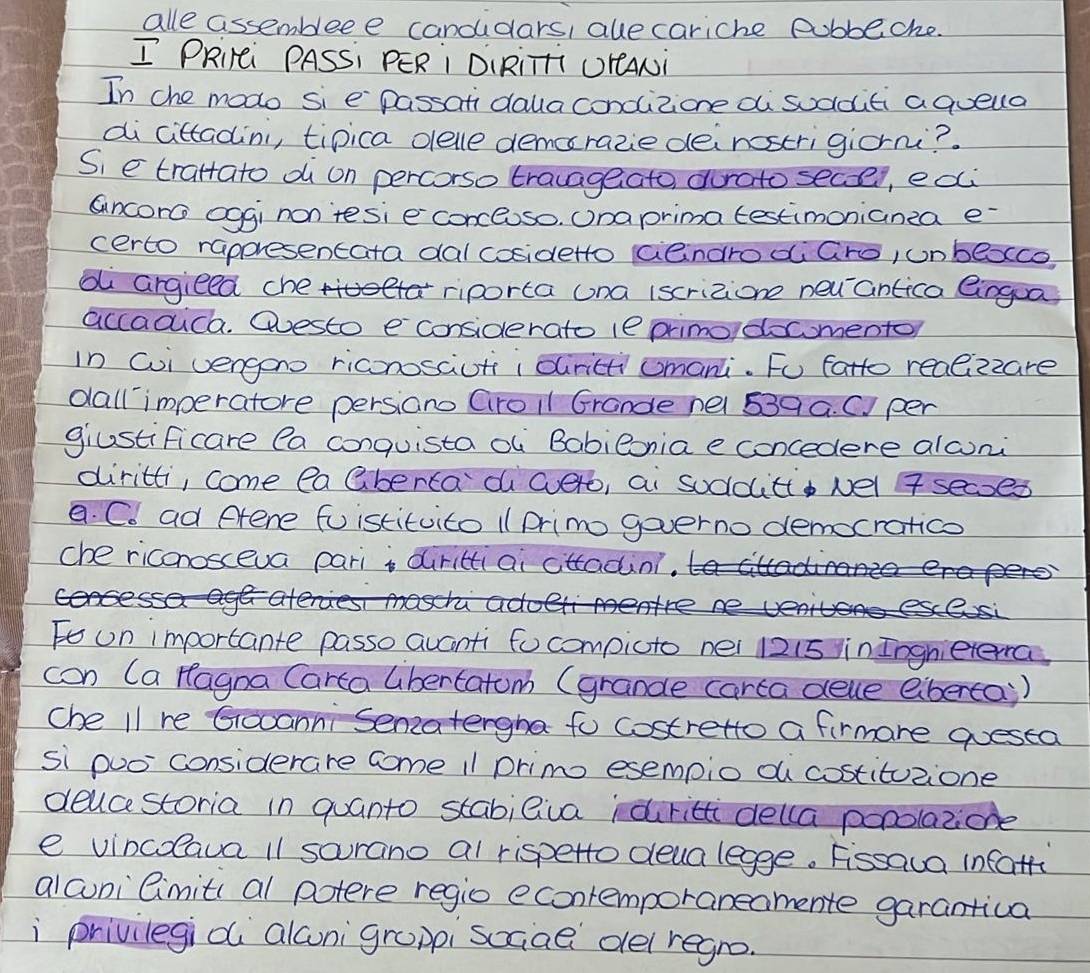 alle assemblee e candidarsi alle cariche pubbliche.
I PRIMI PASSI PER I DIRITTI UMANI
In che modo si è passati dalla condizione di sudditi a quella
di cittadini, tipica delle democrazie dei nostri giorni?.
Si è trattato di un percorso travagliato, durato secoli, e di
ancora oggi non tesi è concluso. Una prima testimonianza è
certo rappresentata dal cosidetto cilindro di Ciro, un blocco
di argilla che rivolta riporta una iscrizione nell'antica lingua
accadica. Questo è considerato il primo documento
in cui vengono riconosciuti i diritti umani. Fu fatto realizzare
dall'imperatore persiano Ciro il Grande nel 539 a.C. per
giustificare la conquista di Babilonia e concedere alcuni
diritti, come la libertà di culto, ai sudditi. Nel 7 secolo
a.C. ad Atene fu istituito il primo governo democratico
che riconosceva pari diritti ai cittadini. La cittadinanza era però
concessa agli ateniesi maschi adulti mentre ne venivano esclusi
Fu un importante passo avanti fu compiuto nel 1215 in Inghilterra
con la Magna Carta Libertatum (grande carta delle libertà)
che il re Giovanni Senzaterra fu costretto a firmare questa
si può considerare come il primo esempio di costituzione
della storia in quanto stabiliva i diritti della popolazione
e vincolava il sovrano al rispetto della legge. Fissava infatti
alcuni limiti al potere regio e contemporaneamente garantiva
i privilegi di alcuni gruppi sociali del regno.